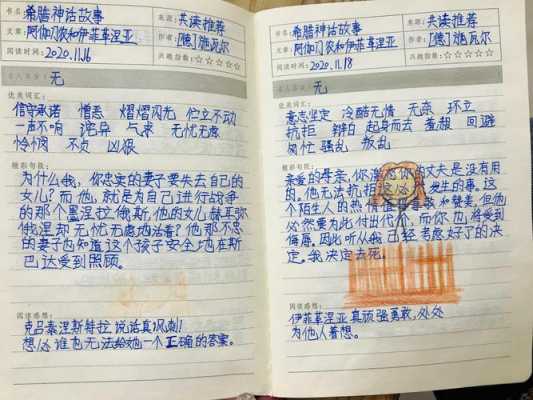 书名:希腊神话故事
来源:共读推荐
文章:阿伽门农和伊菲革涅亚
作者:[德]施瓦尔
阅读时间:2020.11.16
兴趣指数:☆☆☆☆☆
无
优美词汇:
信守承诺 憎恶 熠熠闪光 伫立不动
一声不响 诧异 气来 无忧无虑
怜悯 不贞 凶狠
精彩句段:
为什么我,你忠实的妻子要失去自己的
女儿?而他,就是为自己进行战争
的那个墨涅拉俄斯,他的女儿赫耳弥
俄涅却无忧无虑地活着?他那不忠
的妻子也知道这个孩子安全地在斯
巴达受到照顾。
阅读感想:
克吕泰涅斯特拉说话真讽刺!
想必谁也无法给她一个正确的答案。
书名:希腊神话故事
来源:共读推荐
文章:阿伽门农和伊菲革涅亚
作者:[德]施瓦尔
阅读时间:2020.11.18
兴趣指数:☆☆☆☆☆
无
优美词汇:
意志坚定 冷酷无情 无奈 环立
抗拒 辩白 起身而去 羞赧 回避
匆忙 骚乱 叛乱
精彩句段:
亲爱的母亲,你 你的丈夫是没有用
的。他无法抗拒这必 发生的事。这
个陌生人的热情值得 歌和赞美。但他
必然要为此付出代价,而你也将受到
侮辱。因此听从我 已经考虑好了的决
定。我决定去死。
阅读感想:
伊菲革涅亚真顽强勇敢,处处
为他人着想。